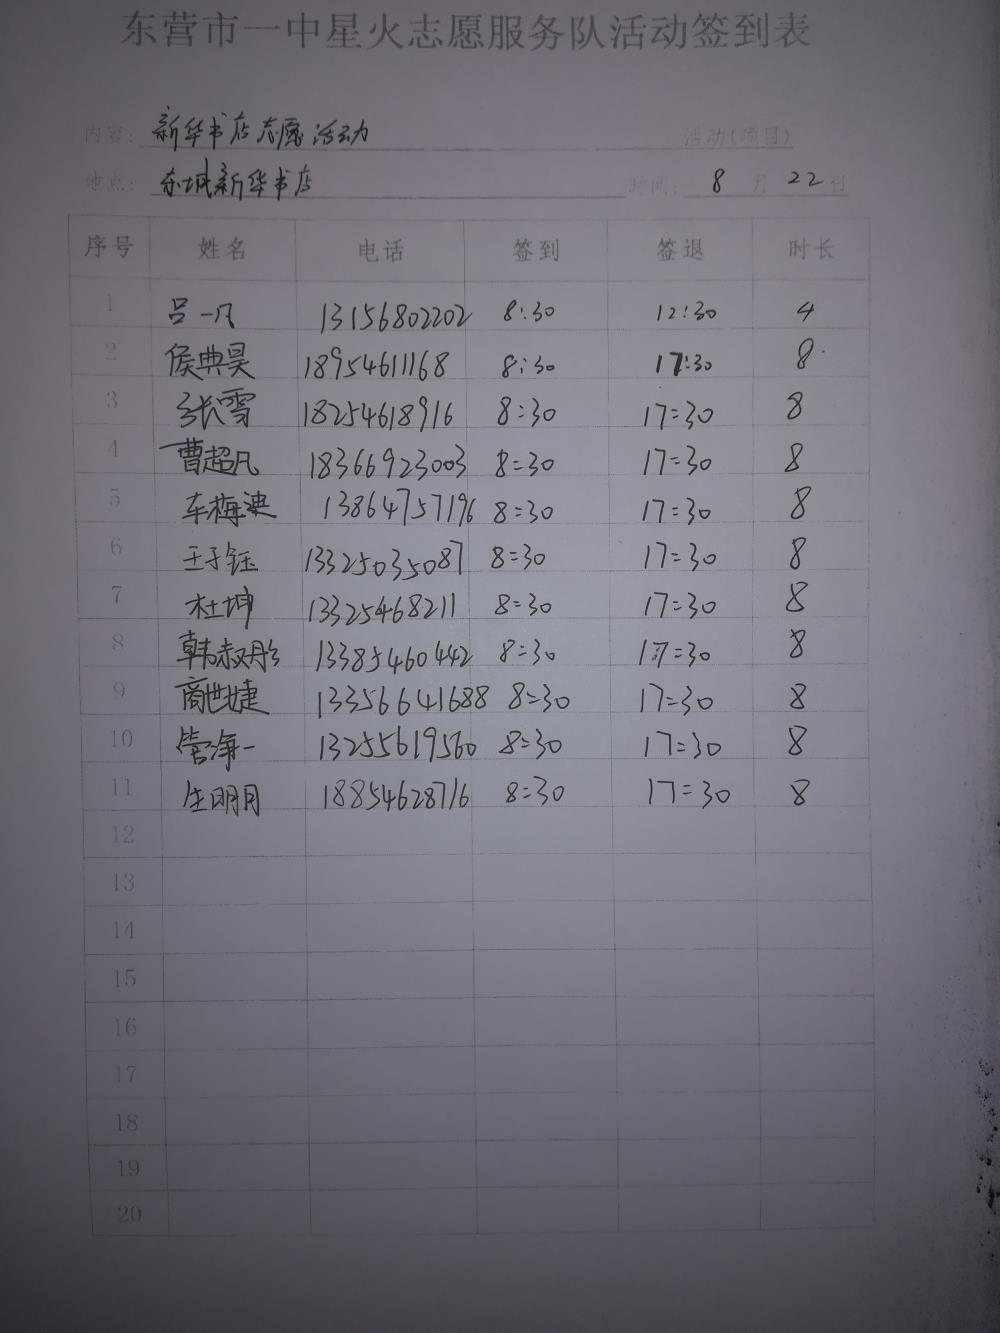 东营市一中星火志愿服务队活动签到表
内容: 新华书店志愿活动 活动(项目)
地点: 东城新华书店 时间: 8 月 22 日
序号 姓名 电话 签到 签退 时长
1 吕一凡 13156802202 8:30 12:30 4
2 侯典昊 18954611168 8:30 17:30 8
3 张雪 18254618916 8:30 17:30 8
4 曹超凡 18366923003 8:30 17:30 8
5 车梅 13864757196 8:30 17:30 8
6 王子钰 13325035087 8:30 17:30 8
7 杜坤 13325468211 8:30 17:30 8
8 韩淑彤 13385460442 8:30 17:30 8
9 商世婕 13356641688 8:30 17:30 8
10 管净一 13255619560 8:30 17:30 8
11 生明月 18854628716 8:30 17:30 8
12
13
14
15
16
17
18
19
20